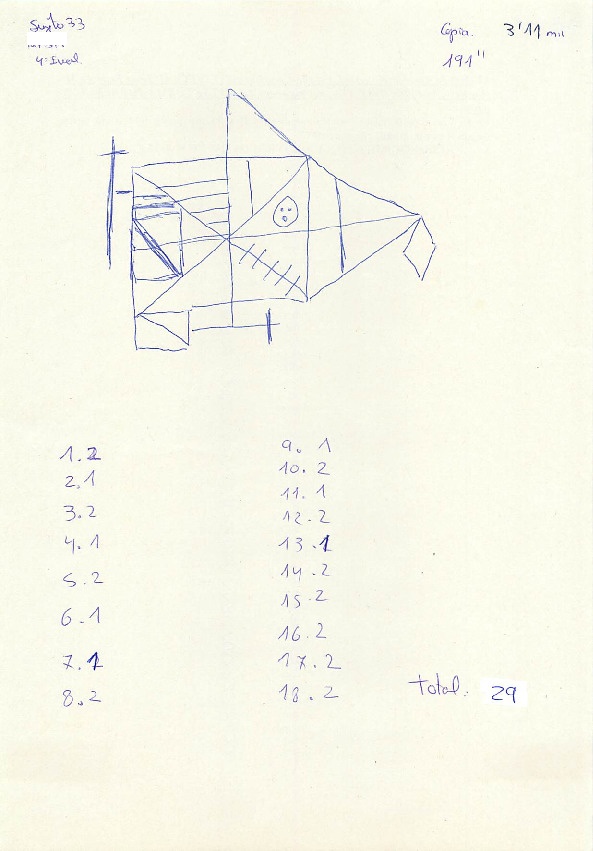 Sujeto 33
4ª Eval.
Copia. 3'11 min
191"
1. 2
2. 1
3. 2
4. 1
5. 2
6. 1
7. 1
8. 2
9. 1
10. 2
11. 1
12. 2
13. 1
14. 2
15. 2
16. 2
17. 2
18. 2
Total: 29